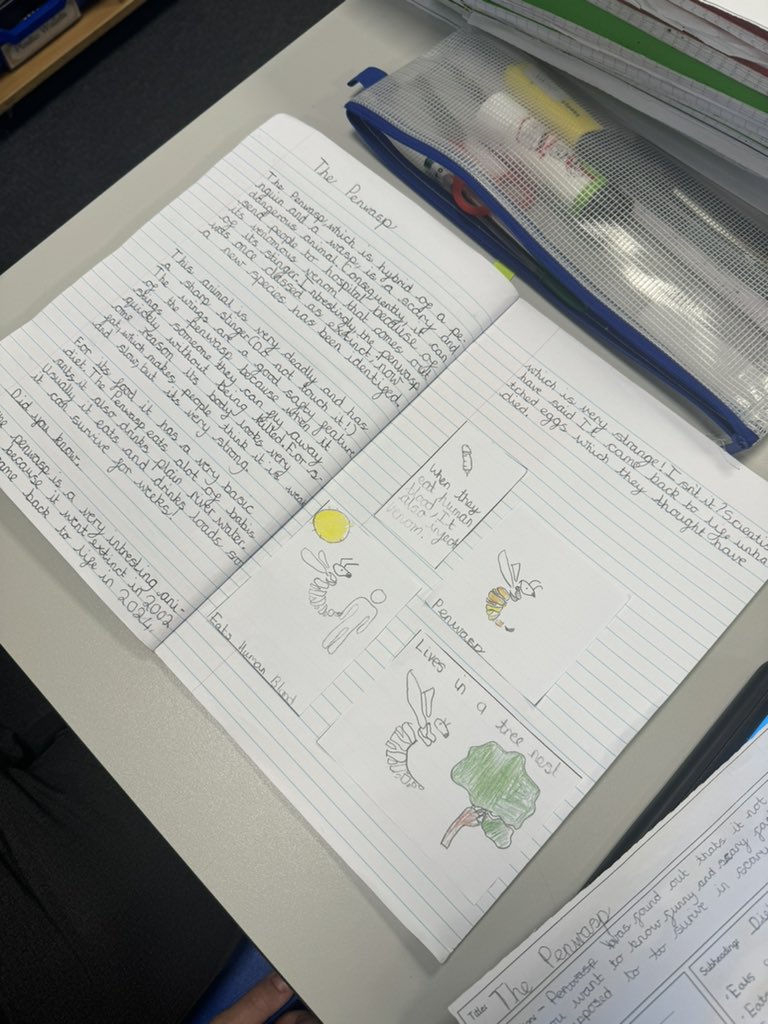 The Penwasp
The Penwasp which is hybrid of a pe-
nguin and a wasp, is a scary and
dangerous animal. Consequently it can
send people to hospital because of
its venomous venom that comes out
of its stinger. Intrestingly, the penwasp
was once classed as extinct, now
a new species has been identifyed.
This animal is very deadly and has
a sharp stinger (DO not touch it!)
The wings are a good safty feature
of the penwasp because when it
stings someone they can fly away
quickly without being killed. For s
one reason its body looks very
fat, which makes people think it is weak
and slow, but it's very strong.
For its food it has a very basic
diet. The Penwasp eats alot of baby
ants it also drinks plain river water.
Usually it eats and drinks loads so
it can survive for weeks!
Did you know:
penwasp is a very intresting ani-
because it went extinct in 2002
came back to life in 2024,
which is very strange! Isn't it? Scientis
have said It came back to life unha
tched eggs which they thought have
died.
when they
eat human
blood It
also inject
venom.
Eats Human Blood
Penwasp
Lives in a tree nest
Title: The Penwasp
Penwasp was found out thats it not
you want to know funny and scary fa
pposed to to surive in scary
Subheading: Di
Eats
Eats